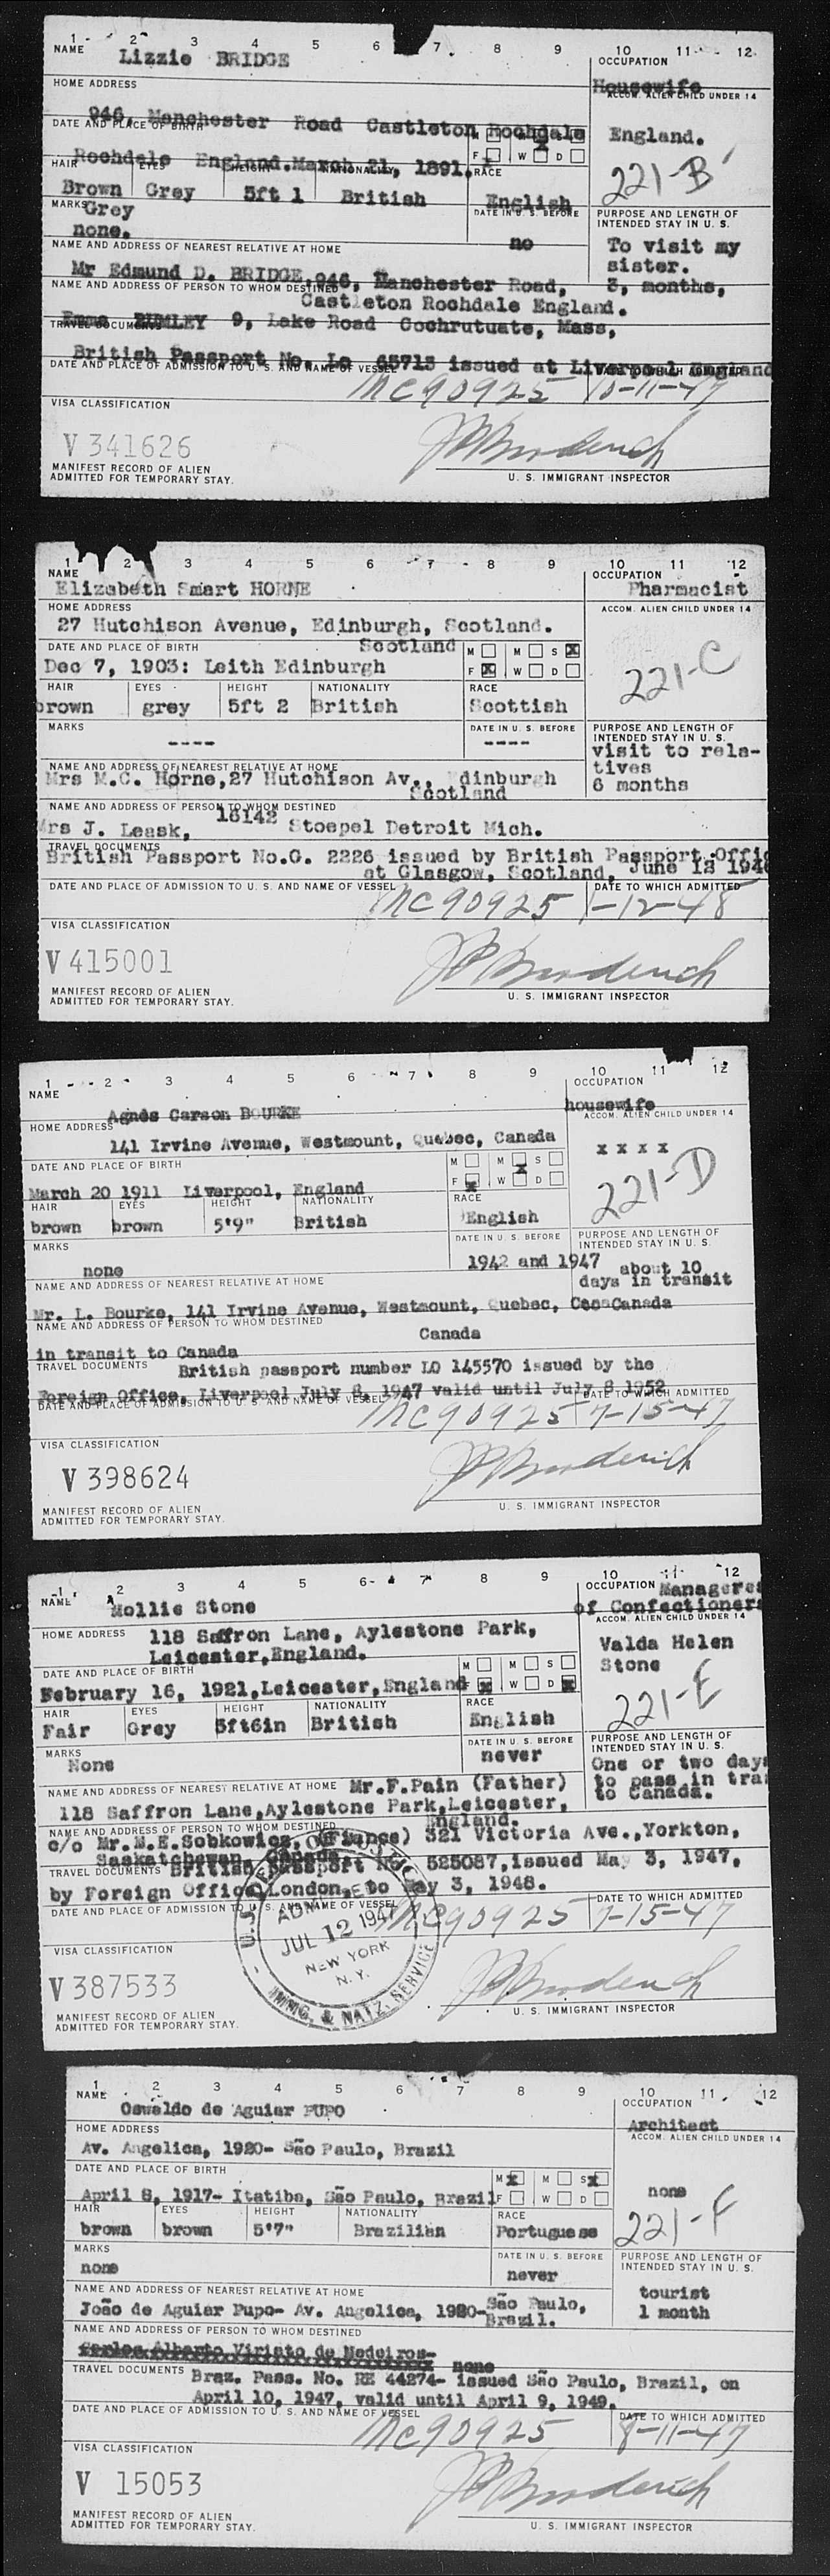 1 2 3 4 5 6 7 8 9 10 11 12
NAME Lizzie BRIDGE OCCUPATION
Housewife
HOME ADDRESS ACCOM. ALIEN CHILD UNDER 14
946, Manchester Road Castleton Rochdale
DATE AND PLACE OF BIRTH England.
Rochdale England. March 21, 1891. F W D
HAIR EYES HEIGHT NATIONALITY RACE 221-B
Brown Grey 5ft 1 British English
MARKS Grey DATE IN U. S. BEFORE PURPOSE AND LENGTH OF
INTENDED STAY IN U. S.
none. no To visit my
NAME AND ADDRESS OF NEAREST RELATIVE AT HOME sister.
Mr Edmund D. BRIDGE, 946, Manchester Road, 3, months,
NAME AND ADDRESS OF PERSON TO WHOM DESTINED Castleton Rochdale England.
Emma 9, Lake Road Cochrutuate, Mass,
TRAVEL DOCUMENTS
British Passport No. Lo 65713 issued at Liverpool England
DATE AND PLACE OF ADMISSION TO U. S. AND NAME OF VESSEL DATE TO WHICH ADMITTED
NC90925 10-11-47
VISA CLASSIFICATION
V 341626
MANIFEST RECORD OF ALIEN
ADMITTED FOR TEMPORARY STAY. U. S. IMMIGRANT INSPECTOR
1 2 3 4 5 6 7 8 9 10 11 12
NAME OCCUPATION
Elizabeth Smart HORNE Pharmacist
HOME ADDRESS ACCOM. ALIEN CHILD UNDER 14
27 Hutchison Avenue, Edinburgh, Scotland.
DATE AND PLACE OF BIRTH Scotland M M S X
Dec 7, 1903: Leith Edinburgh F X W D
221-C
HAIR EYES HEIGHT NATIONALITY RACE
brown grey 5ft 2 British Scottish
MARKS DATE IN U. S. BEFORE PURPOSE AND LENGTH OF
INTENDED STAY IN U. S.
---- ---- visit to rela-
NAME AND ADDRESS OF NEAREST RELATIVE AT HOME tives
Mrs M.C. Horne, 27 Hutchison Av., dinburgh 6 months
Scotland
NAME AND ADDRESS OF PERSON TO WHOM DESTINED
rs J. Leask, 16142 Stoepel Detroit Mich.
TRAVEL DOCUMENTS
British Passport No.G. 2226 issued by British Passport Offic
at Glasgow, Scotland, June 18 194
DATE AND PLACE OF ADMISSION TO U. S. AND NAME OF VESSEL DATE TO WHICH ADMITTED
NC90925 1-12-48
VISA CLASSIFICATION
V 415001
MANIFEST RECORD OF ALIEN
ADMITTED FOR TEMPORARY STAY. U. S. IMMIGRANT INSPECTOR
1 2 3 4 5 6 7 8 9 10 11 12
NAME OCCUPATION
Agnes Carson BOURKE housewife
HOME ADDRESS ACCOM. ALIEN CHILD UNDER 14
141 Irvine Avenue, Westmount, Quebec, Canada x x x x
DATE AND PLACE OF BIRTH M M X S
March 20 1911 Liverpool, England F X W D
221-D
HAIR EYES HEIGHT NATIONALITY RACE
brown brown 5'9" British English
MARKS DATE IN U. S. BEFORE PURPOSE AND LENGTH OF
INTENDED STAY IN U. S.
none 1942 and 1947 about 10
NAME AND ADDRESS OF NEAREST RELATIVE AT HOME days in transit
Mr. L. Bourke, 141 Irvine Avenue, Westmount, Quebec, Canada
NAME AND ADDRESS OF PERSON TO WHOM DESTINED Canada
in transit to Canada
TRAVEL DOCUMENTS British passport number LO 145570 issued by the
Foreign Office, Liverpool July 8, 1947 valid until July 8 1952
DATE AND PLACE OF ADMISSION TO U. S. AND NAME OF VESSEL DATE TO WHICH ADMITTED
NC90925 7-15-47
VISA CLASSIFICATION
V 398624
MANIFEST RECORD OF ALIEN
ADMITTED FOR TEMPORARY STAY. U. S. IMMIGRANT INSPECTOR
1 2 3 4 5 6 7 8 9 10 11 12
NAME Mollie Stone OCCUPATION Manageres
of Confectioners
HOME ADDRESS 118 Saffron Lane, Aylestone Park, ACCOM. ALIEN CHILD UNDER 14
Leicester, England. Valda Helen
DATE AND PLACE OF BIRTH M M S Stone
February 16, 1921, Leicester, England F X W D X
221-E
HAIR EYES HEIGHT NATIONALITY RACE
Fair Grey 5ft6in British English
MARKS DATE IN U. S. BEFORE PURPOSE AND LENGTH OF
INTENDED STAY IN U. S.
None never One or two days
NAME AND ADDRESS OF NEAREST RELATIVE AT HOME Mr.F.Pain (Father) to pass in tra
118 Saffron Lane, Aylestone Park, Leicester, to Canada.
England.
NAME AND ADDRESS OF PERSON TO WHOM DESTINED
c/o Mr.N.E.Sobkowicz, (Fiance) 321 Victoria Ave.,Yorkton,
Saskatchewan, Canada.
TRAVEL DOCUMENTS British Passport No. 525087, issued May 3, 1947,
by Foreign Office, London, to May 3, 1948.
DATE AND PLACE OF ADMISSION TO U. S. AND NAME OF VESSEL DATE TO WHICH ADMITTED
NC90925 7-15-47
ADMITTED
JUL 12 1947
NEW YORK
N. Y.
IMMIG. & NATZ. SERVICE
VISA CLASSIFICATION
V 387533
MANIFEST RECORD OF ALIEN
ADMITTED FOR TEMPORARY STAY. U. S. IMMIGRANT INSPECTOR
1 2 3 4 5 6 7 8 9 10 11 12
NAME OCCUPATION
Oswaldo de Aguiar PUPO Architect
HOME ADDRESS ACCOM. ALIEN CHILD UNDER 14
Av. Angelica, 1920- São Paulo, Brazil
DATE AND PLACE OF BIRTH M X M S X
April 8, 1917- Itatiba, São Paulo, Brazil F W D none
221-F
HAIR EYES HEIGHT NATIONALITY RACE
brown brown 5'7" Brazilian Portuguese
MARKS DATE IN U. S. BEFORE PURPOSE AND LENGTH OF
INTENDED STAY IN U. S.
none never
NAME AND ADDRESS OF NEAREST RELATIVE AT HOME tourist
João de Aguiar Pupo- Av. Angelica, 1920- São Paulo, 1 month
Brazil.
NAME AND ADDRESS OF PERSON TO WHOM DESTINED
Carlos Alberto Viristo de Medeiros-
none
TRAVEL DOCUMENTS Braz. Pass. No. RE 44274- issued São Paulo, Brazil, on
April 10, 1947, valid until April 9, 1949.
DATE AND PLACE OF ADMISSION TO U. S. AND NAME OF VESSEL DATE TO WHICH ADMITTED
NC90925 8-11-47
VISA CLASSIFICATION
V 15053
MANIFEST RECORD OF ALIEN
ADMITTED FOR TEMPORARY STAY. U. S. IMMIGRANT INSPECTOR